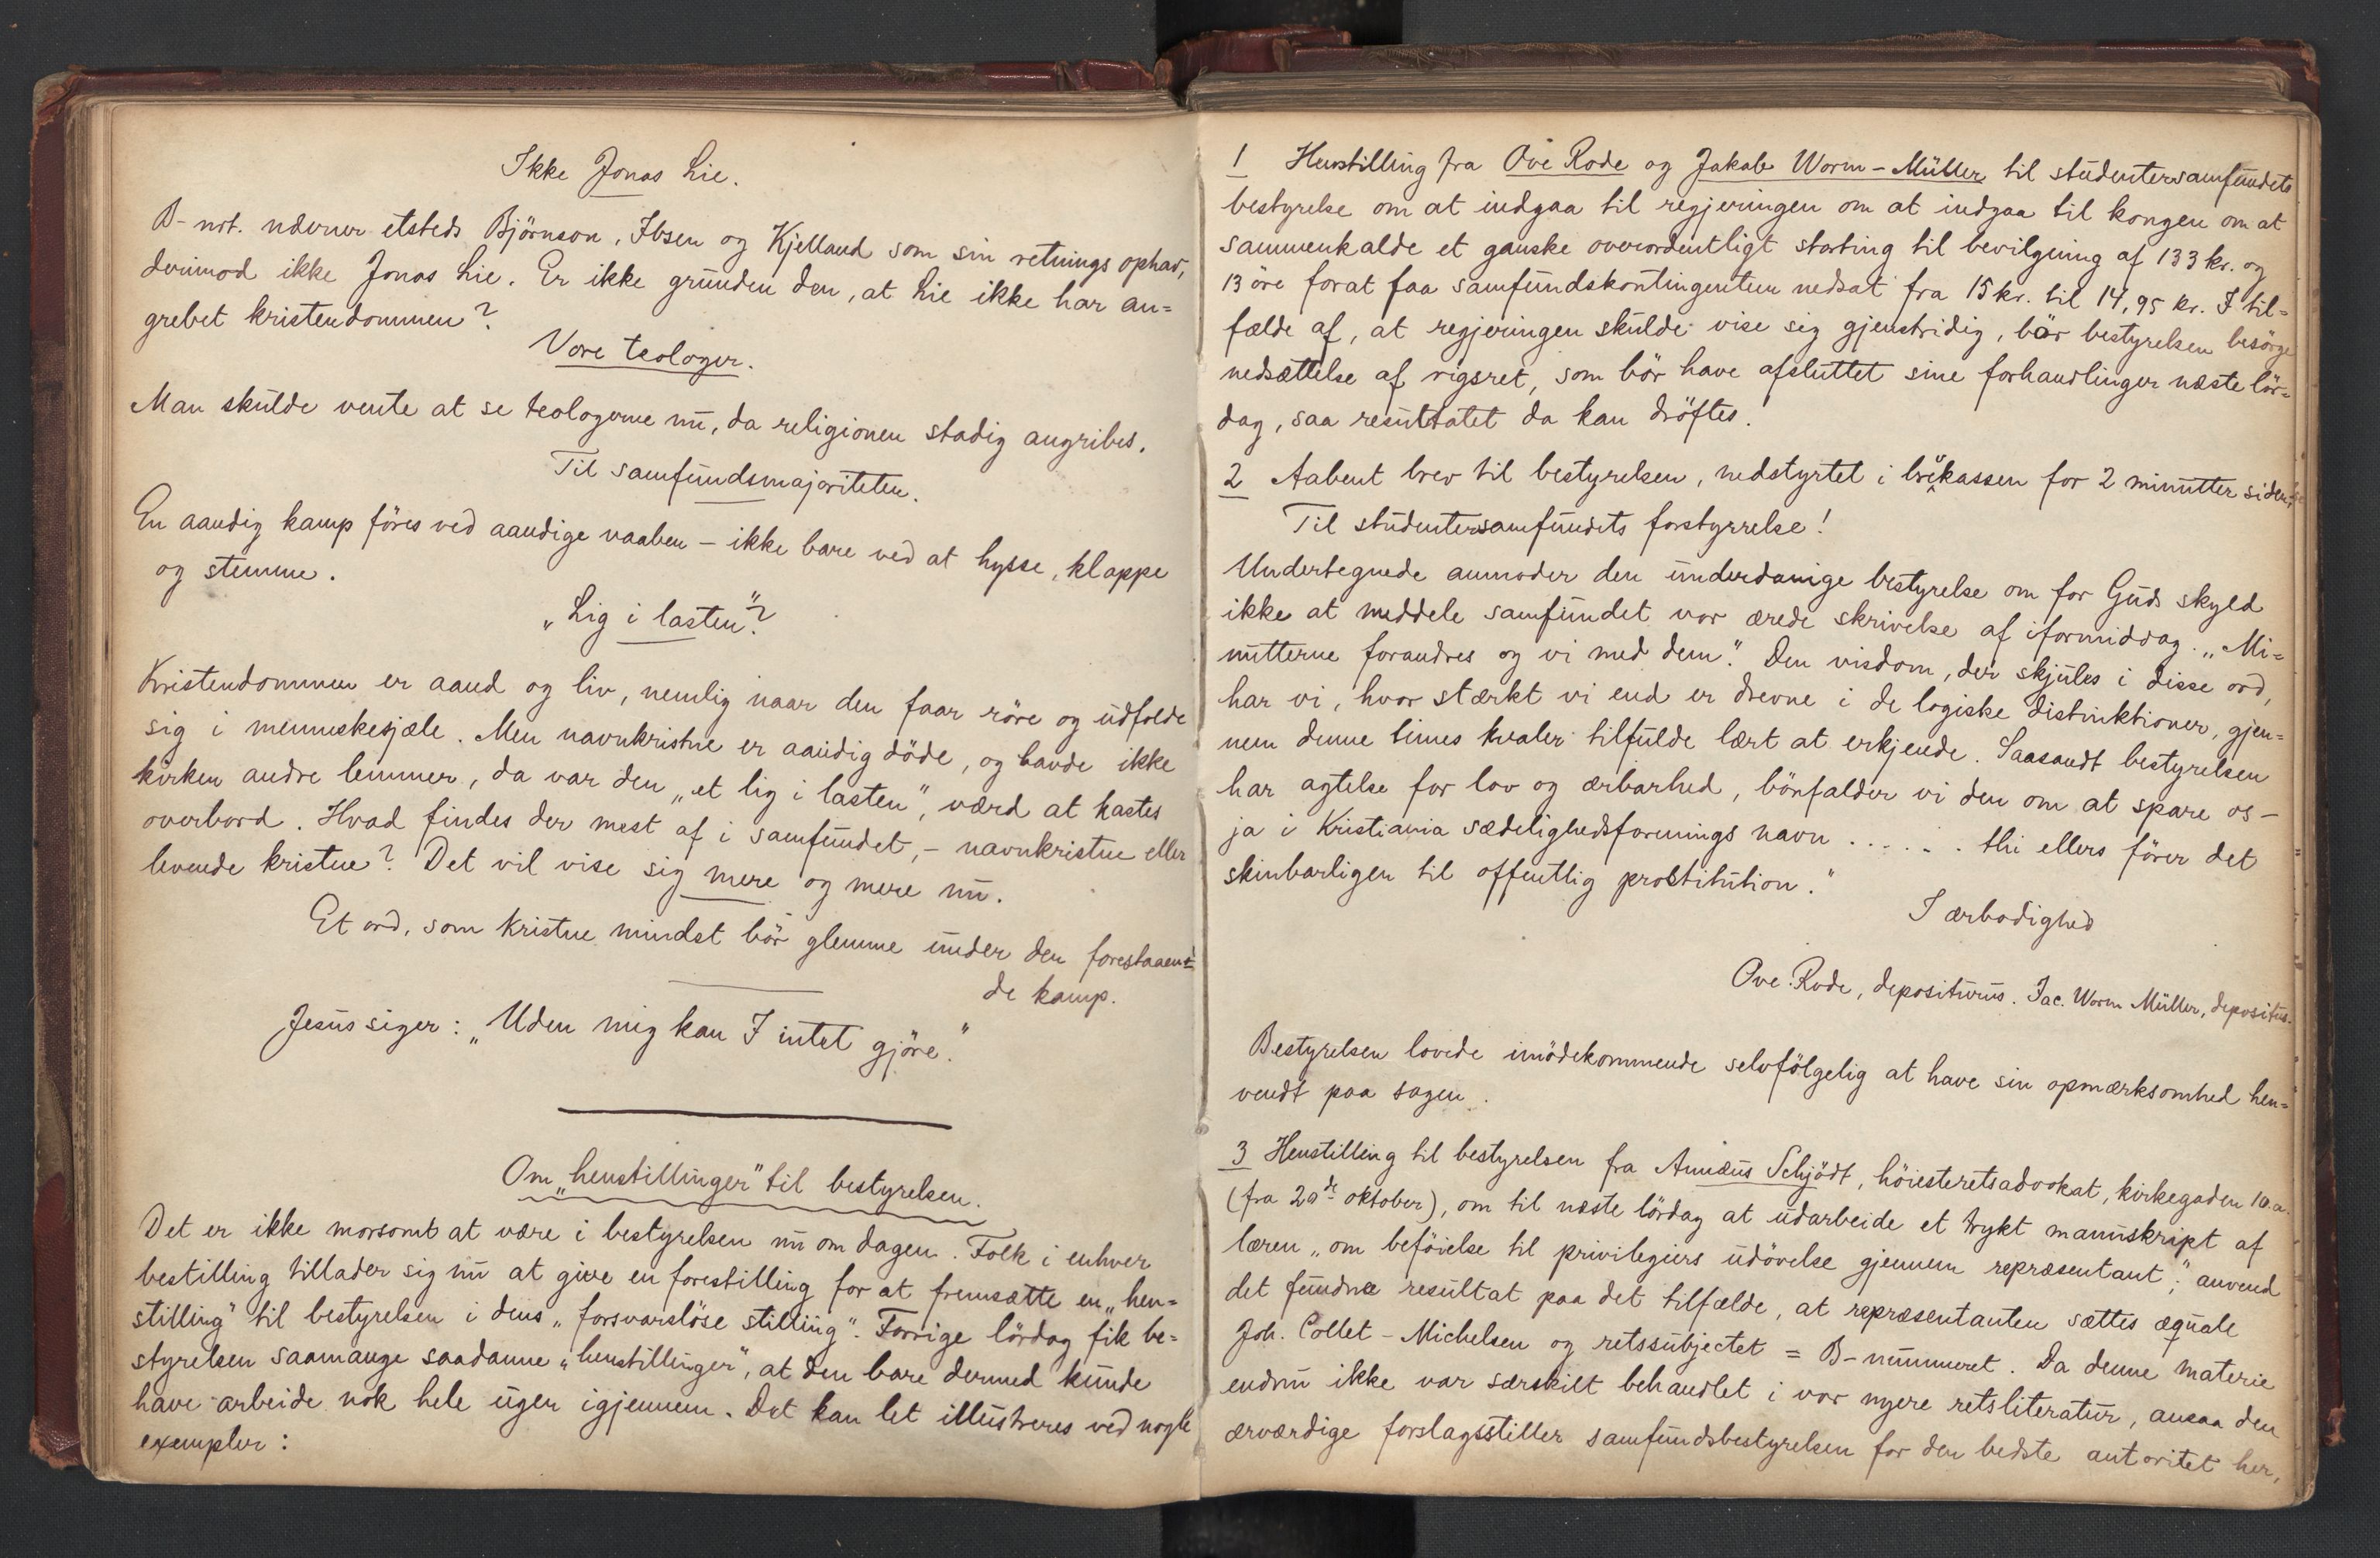 Ikke Jonas Lie.
B-nrt. nævner etsteds Björnson, Ibsen og Kjelland som sin retnings ophav,
derimod ikke Jonas Lie. Er ikke grunden den, at Lie ikke har an=
grebet kristendommen?
Vore teologer.
Man skulde vente at se teologerne nu, da religionen stadig angribes.
Til samfundsmajoriteten.
En aandig kamp föres ved aandige vaaben – ikke bare ved at hysse, klappe
og stemme.
„Lig i lasten"?
Kristendommen er aand og liv, nemlig naar den faar röre og udfolde
sig i menneskesjæle. Men navnkristne er aandig döde, og havde ikke
kirken andre lemmer, da var den „et lig i lasten", værd at kastes
overbord. Hvad findes der mest af i samfundet, – navnkristne eller
levende kristne? Det vil vise sig mere og mere nu.
Et ord, som kristne mindst bör glemme under den forestaaen=
de kamp.
Jesus siger: „Uden mig kan I intet gjöre."
Om „henstillinger" til bestyrelsen.
Det er ikke morsomt at være i bestyrelsen nu om dagen. Folk i enhver
bestilling tillader sig nu at give en forestilling for at fremsætte en „hen=
stilling" til bestyrelsen i dens „forsvarslöse stilling". Forrige lördag fik be=
styrelsen saamange saadanne „henstillinger", at den bare dermed kunde
have arbeide nok hele ugen igjennem. Det kan let illustreres ved nogle
exempler:
1 Henstilling fra Ove Rode og Jakob Worm-Müller til studentersamfundets
bestyrelse om at indgaa til regjeringen om at indgaa til kongen om at
sammenkalde et ganske overordentligt storting til bevilgning af 133 kr. og
13 öre forat faa samfundskontingenten nedsat fra 15 kr. til 14,95 kr. I til=
fælde af, at regjeringen skulde vise sig gjenstridig, bör bestyrelsen besörge
nedsættelse af rigsret, som bör have afsluttet sine forhandlinger næste lör=
dag, saa resultatet da kan dröftes!
2 Aabent brev til bestyrelsen, nedstyrtet i brevkassen for 2 minutter siden.
Til studentersamfundets forstyrrelse!
Undertegnede anmoder den underdanige bestyrelse om for Guds skyld
ikke at meddele samfundet vor ærede skrivelse af iformiddag. „Mi=
nutterne forandres og vi med dem." Den visdom, der skjules i disse ord,
har vi, hvor stærkt vi end er drevne i de logiske distinktioner, gjen=
nem denne times kvaler tilfulde lært at erkjende. Saasandt bestyrelsen
har agtelse for lov og ærbarhed, bönfalder vi den om at spare os –
ja i Kristiania sædelighedsforenings navn . . . . . . thi ellers förer det
skinbarligen til offentlig prostitution."
I ærbodighed
Ove Rode, depositurus. Jac. Worm Müller, depositus.
Bestyrelsen lovede imödekommende selvfölgelig at have sin opmærksomhed hen=
vendt paa sagen.
3 Henstilling til bestyrelsen fra Annæus Schjödt, höiesteretsadvokat, kirkegaden 10.a.
(fra 20de oktober), om til næste lördag at udarbeide et trykt manuskript af
læren „om beföielse til privilegiers udövelse gjennem repræsentant"; anvend
det fundne resultat paa det tilfælde, at repræsentanten sættes æquale
Joh. Collet-Michelsen og retssubjectet = B-nummeret. Da denne materie
endnu ikke var særskilt behandlet i vor nyere retsliteratur, ansaa den
ærværdige forslagsstiller samfundsbestyrelsen for den bedste autoritet her,